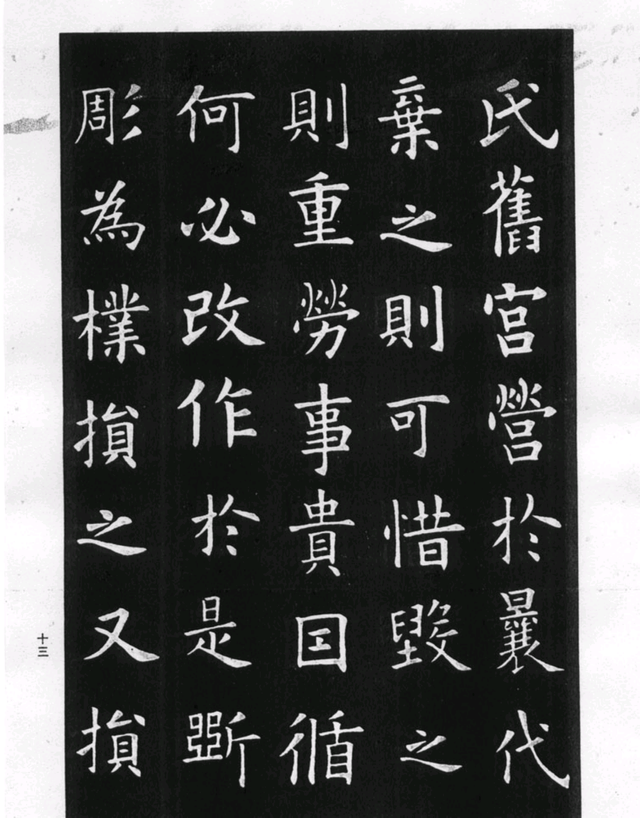 氏舊宮營於曩代
棄之則可惜毀之
則重勞事貴因循
何必改作於是斲
彫為樸損之又損
十三